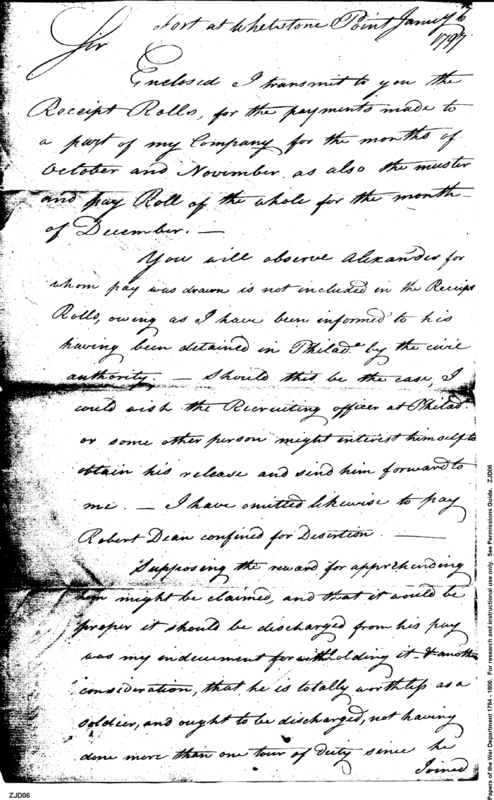 Fort at Whetstone Point Januy 6th
1797
Sir
Enclosed I transmit to you the
Receipt Rolls, for the payments made to
a part of my Company for the months of
October and November as also the muster
and pay Roll of the whole for the month
of December. —
You will observe Alexander for
whom pay was drawn is not included in the Receipt
Rolls, owing as I have been informed to his
having been detained in Philada by the civil
authority — Should this be the case, I
could wish the Recruiting officer at Philad.
or some other person might interest himself to
obtain his release and send him forward to
me. — I have omitted likewise to pay
Robert Dean confined for Disertion. —
Supposing the reward for apprehending
him might be claimed, and that it would be
proper it should be discharged from his pay
was my inducement for withholding it. & another
consideration, that he is totally worthless as a
soldier, and ought to be discharged, not having
done more than one tour of duty since he
Joined
ZJD06
Papers of the War Department 1784 - 1800. For research and instructional use only. See Permissions Guide. ZJD06